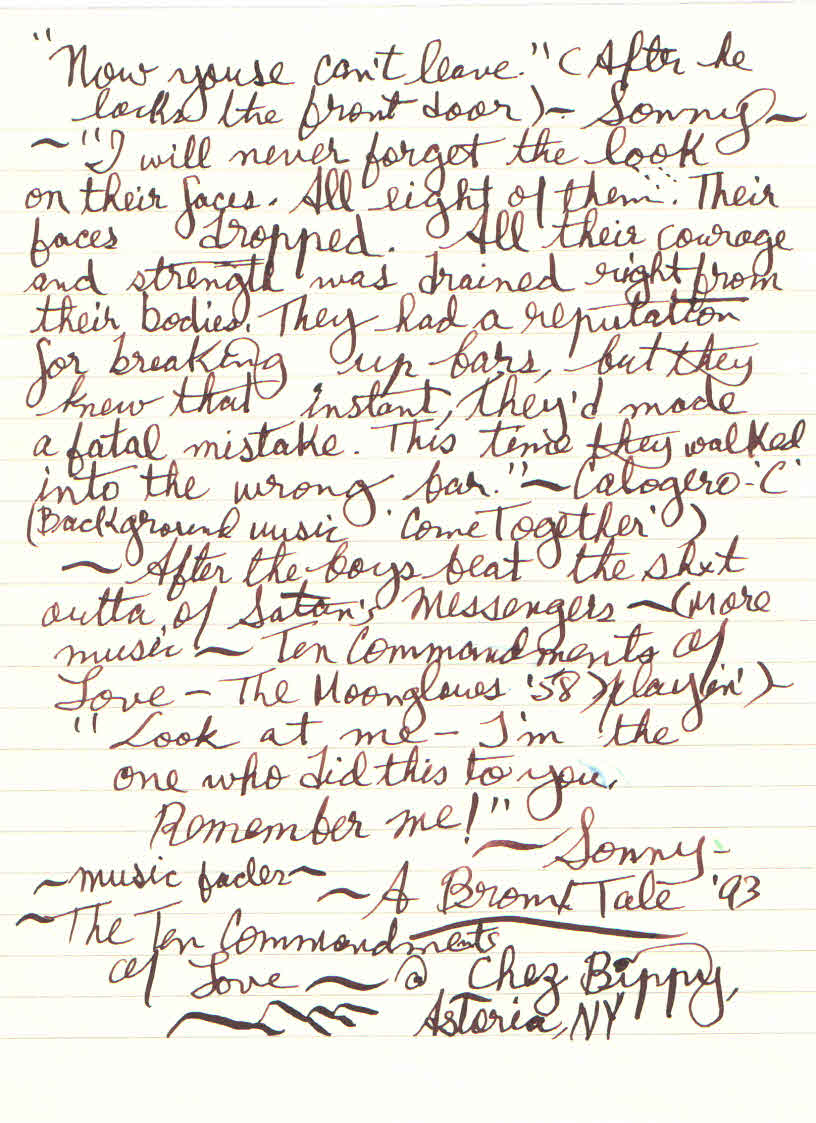 "Now youse can't leave." (After he
locks the front door)~ Sonny~
~"I will never forget the look
on their faces. All eight of them. Their
faces dropped. All their courage
and strength was drained right from
their bodies. They had a reputation
for breaking up bars, but they
knew that instant, they'd made
a fatal mistake. This time they walked
into the wrong bar."~Calogero-'C'
(Background music 'Come Together')
~ After the boys beat the shxt
outta of Satan's Messengers ~(More
music ~ Ten Commandments of
Love - The Moonglows '58 playin')~
"Look at me - I'm the
one who did this to you.
Remember me!"
~ Sonny-
~music fades~
~A Bronx Tale '93
~The Ten Commandments
of Love ~ @ Chez Bippy,
Astoria, NY